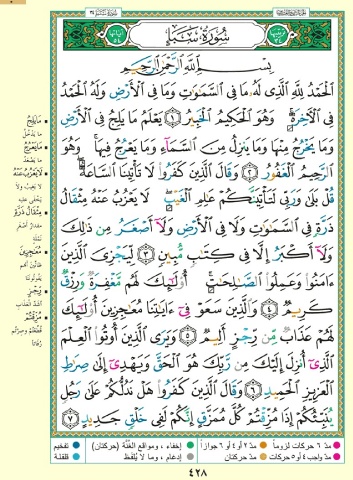 سُورَةُ سَبَإٍ
بِسْمِ ٱللَّهِ ٱلرَّحْمَٰنِ ٱلرَّحِيمِ
ٱلْحَمْدُ لِلَّهِ ٱلَّذِى لَهُۥ مَا فِى ٱلسَّمَٰوَٰتِ وَمَا فِى ٱلْأَرْضِ وَلَهُ ٱلْحَمْدُ
فِى ٱلْءَاخِرَةِ ۚ وَهُوَ ٱلْحَكِيمُ ٱلْخَبِيرُ ١ يَعْلَمُ مَا يَلِجُ فِى ٱلْأَرْضِ
وَمَا يَخْرُجُ مِنْهَا وَمَا يَنزِلُ مِنَ ٱلسَّمَآءِ وَمَا يَعْرُجُ فِيهَا ۚ وَهُوَ
ٱلرَّحِيمُ ٱلْغَفُورُ ٢ وَقَالَ ٱلَّذِينَ كَفَرُوا۟ لَا تَأْتِينَا ٱلسَّاعَةُ ۖ
قُلْ بَلَىٰ وَرَبِّى لَتَأْتِيَنَّكُمْ عَٰلِمِ ٱلْغَيْبِ ۖ لَا يَعْزُبُ عَنْهُ مِثْقَالُ
ذَرَّةٍ فِى ٱلسَّمَٰوَٰتِ وَلَا فِى ٱلْأَرْضِ وَلَآ أَصْغَرُ مِن ذَٰلِكَ
وَلَآ أَكْبَرُ إِلَّا فِى كِتَٰبٍ مُّبِينٍ ٣ لِّيَجْزِىَ ٱلَّذِينَ
ءَامَنُوا۟ وَعَمِلُوا۟ ٱلصَّٰلِحَٰتِ ۚ أُو۟لَٰٓئِكَ لَهُم مَّغْفِرَةٌ وَرِزْقٌ
كَرِيمٌ ٤ وَٱلَّذِينَ سَعَوْ فِىٓ ءَايَٰتِنَا مُعَٰجِزِينَ أُو۟لَٰٓئِكَ
لَهُمْ عَذَابٌ مِّن رِّجْزٍ أَلِيمٌ ٥ وَيَرَى ٱلَّذِينَ أُوتُوا۟ ٱلْعِلْمَ
ٱلَّذِىٓ أُنزِلَ إِلَيْكَ مِن رَّبِّكَ هُوَ ٱلْحَقَّ وَيَهْدِىٓ إِلَىٰ صِرَٰطِ
ٱلْعَزِيزِ ٱلْحَمِيدِ ٦ وَقَالَ ٱلَّذِينَ كَفَرُوا۟ هَلْ نَدُلُّكُمْ عَلَىٰ رَجُلٍ
يُنَبِّئُكُمْ إِذَا مُزِّقْتُمْ كُلَّ مُمَزَّقٍ إِنَّكُمْ لَفِى خَلْقٍ جَدِيدٍ ٧
مَا يَلِجُ
ما يدخل
مَا يَعْرُجُ
ما يصعد
لَا يَعْزُبُ عَنْهُ
مِثْقَالُ ذَرَّةٍ
مُعَٰجِزِينَ
مُزِّقْتُمْ
مد ٦ حركات لزوماً مد ٢ أو ٤ أو ٦ جوازاً إخفاء، ومواقع الغُنَّة (حركتان) تفخيم
مد واجب ٤ أو ٥ حركات مد حركتان إدغام، وما لا يُلفظ قلقلة
٤٢٨